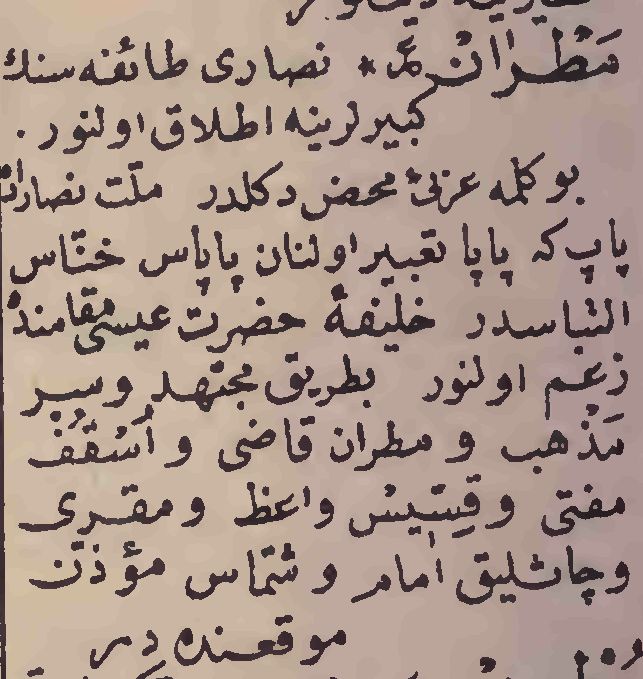 مَطْرَانْ ع * نصاری طائفه سنك
كبیرلرینه اطلاق اولنور .
بو كلمه عربیٔ محض دكلدر ملّت نصاراده
پاپ كه پاپا تعبیر اولنان پاپاس خنّاس
النّاسدر خلیفهٔ حضرت عیسی مقامنده
زعم اولنور بطریق مجتهد و سر
مَذْهب و مطران قاضی و أُسْقُفْ
مفتی و قِسّیسْ واعظ و مقری
و جاثلیق أمام و شمّاس مؤذّن
موقعنده در